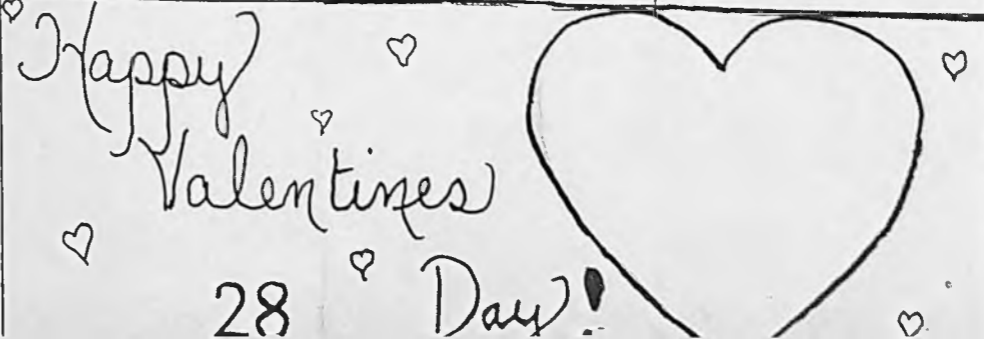 Happy
Valentines
28 Day!